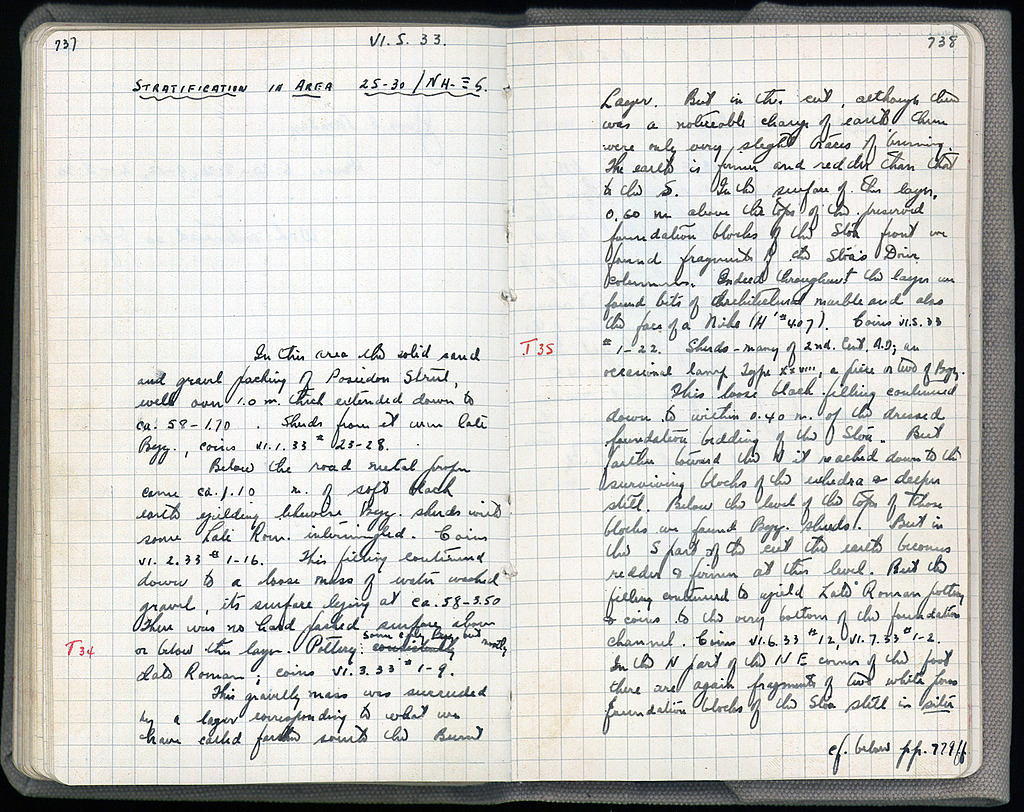 737
VI.S.33.
STRATIFICATION IN AREA 25-30/NH-ΞS.
In this area the solid sand
and gravel packing of Poseidon Street,
well over 1.0 m. thick extended down to
ca. 58-1.70. Sherds from it were late
Byz., coins VI.1.33 #25-28.
Below the road metal proper
came ca. 1.10 m. of soft black
earth yielding likewise Byz. sherds with
some Late Rom. intermingled. Coins
VI.2.33 #1-16. This filling continued
down to a loose mass of water washed
gravel, its surface lying at ca. 58-3.50
There was no hard packed surface above
T34
or below this layer. Pottery: some early Byz. but mostly
Late Roman; coins VI.3.33 #1-9.
This gravelly mass was succeeded
by a layer corresponding to what we
have called farther south the Burnt
738
Layer. But in this cut, although there
was a noticeable change of earth there
were only very slight traces of burning.
The earth is firmer and redder than that
to the S. In the surface of this layer,
0.60 m above the tops of the preserved
foundation blocks of the Stoa front we
found fragments of the Stoa's Doric
columns. Indeed throughout the layer we
found bits of architectural marble and also
the face of a Nike (H' #407). Coins VI.5.33
T35
#1-22. Sherds - many of 2nd. Cent. A.D; an
occasional lamp Type XXVIII, a piece or two of Byz.
This loose black filling continued
down to within 0.40 m. of the dressed
foundation bedding of the Stoa. But
farther toward the N it reached down to the
surviving blocks of the exhedra & deeper
still. Below the level of the tops of those
blocks we found Byz. sherds!. But in
the S part of the cut the earth becomes
redder & firmer at this level. But the
filling continued to yield Late Roman pottery
& coins to the very bottom of the foundation
channel. Coins VI.6.33 #12, VI.7.33 #1-2.
In the N part of the NE corner of the foot
there are again fragments of two white poros
foundation blocks of the Stoa still in situ
cf. below pp. 779ff.